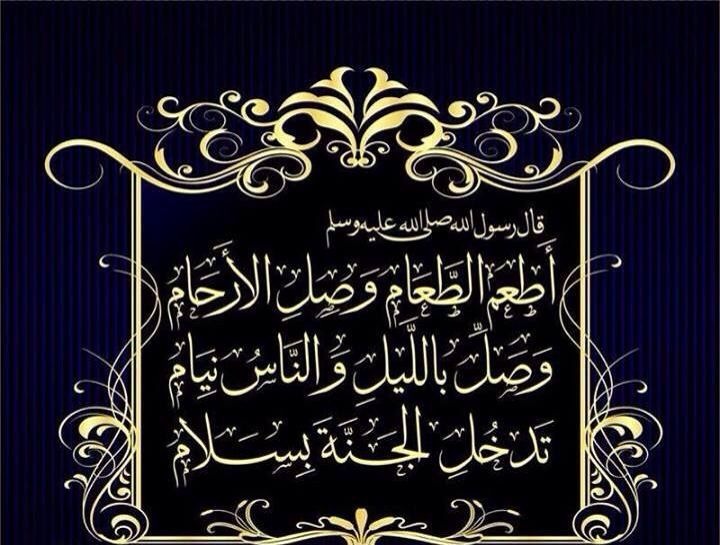 قال رسول الله صلى الله عليه وسلم
أَطعم الطَّعَام وَصِلِ الأَرحَام
وَصَلِّ بِاللَّيلِ وَالنَّاسُ نِيَام
تَدخُلِ الجَنَّةَ بِسَلَام